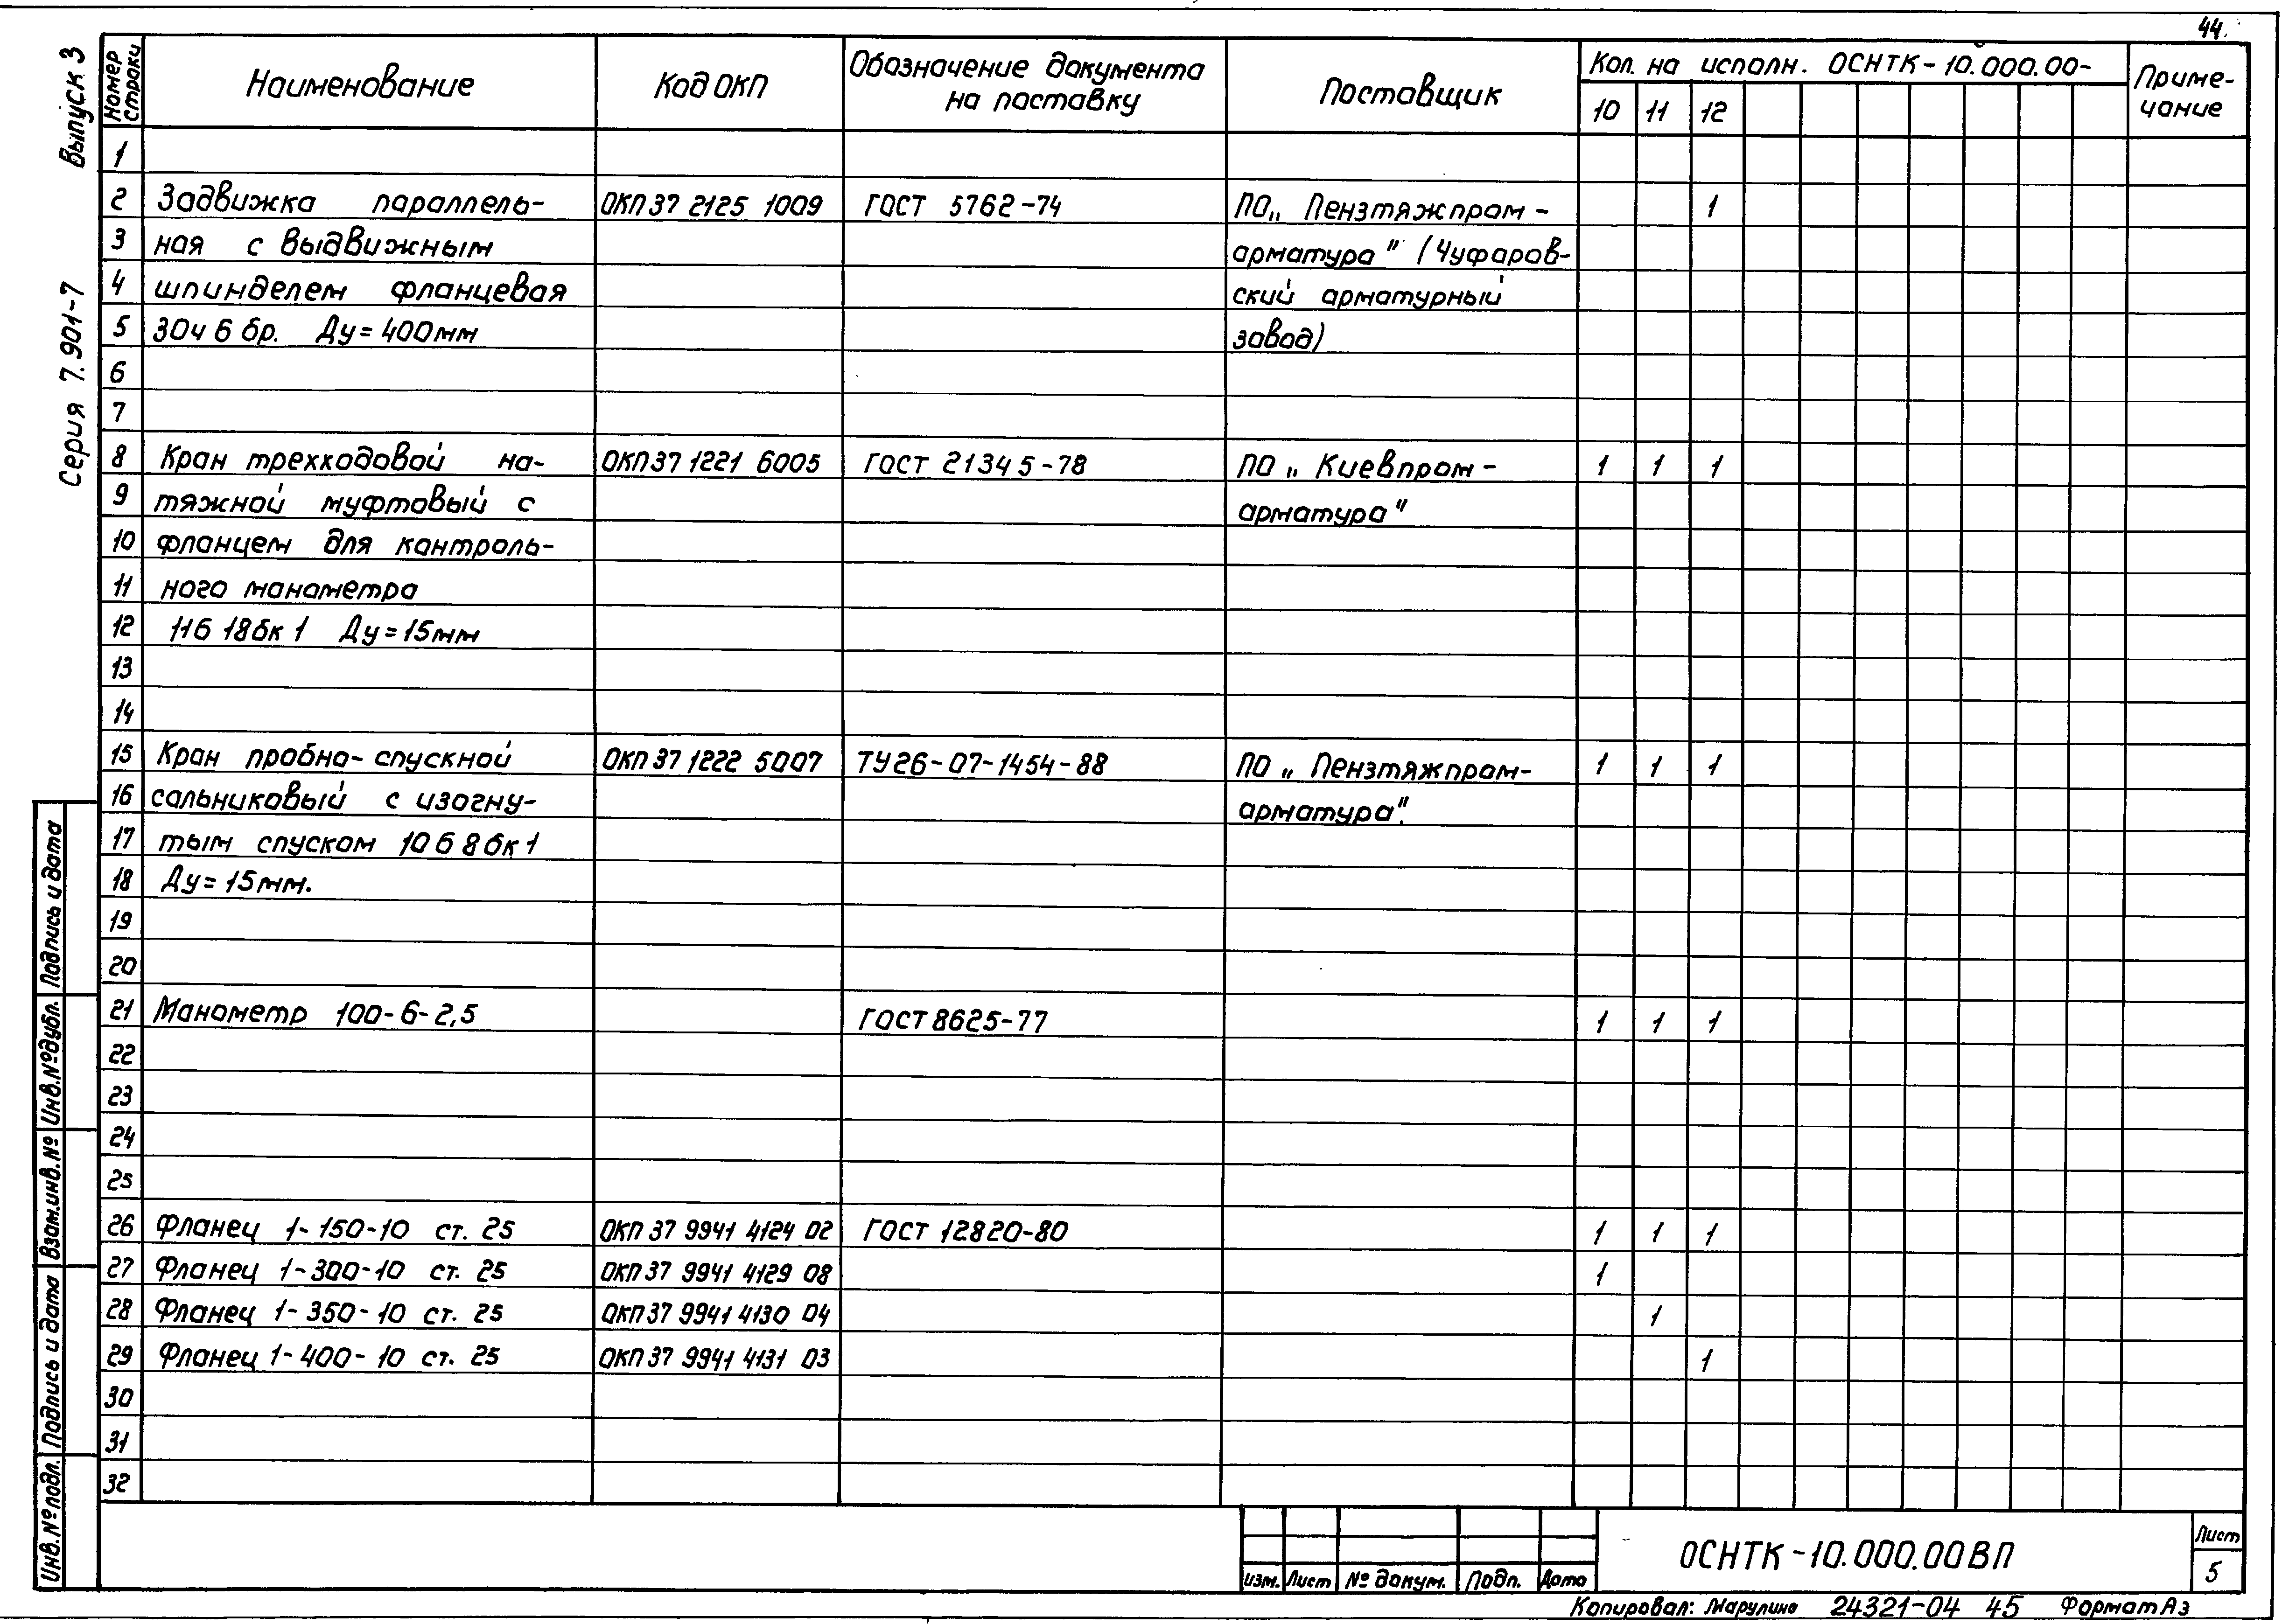 44.
Выпуск 3
Серия 7.901-7
Номер строки
Наименование
Код ОКП
Обозначение документа на поставку
Поставщик
Кол. на исполн. ОСНТК-10.000.00-
10 11 12
Приме-
чание
1
2 Задвижка параллель- ОКП 37 2125 1009 ГОСТ 5762-74 ПО „Пензтяжпром- 1
3 ная с выдвижным арматура" (Чуфаров-
4 шпинделем фланцевая ский арматурный
5 30ч 6 бр. Ду=400мм завод)
6
7
8 Кран трехходовой на- ОКП 37 1221 6005 ГОСТ 21345-78 ПО „Киевпром- 1 1 1
9 тяжной муфтовый с арматура"
10 фланцем для контроль-
11 ного манометра
12 11б 18бк 1 Ду=15мм
13
14
15 Кран пробно-спускной ОКП 37 1222 5007 ТУ26-07-1454-88 ПО „Пензтяжпром- 1 1 1
16 сальниковый с изогну- арматура".
17 тым спуском 10б 8бк1
18 Ду=15мм.
19
20
21 Манометр 100-6-2,5 ГОСТ 8625-77 1 1 1
22
23
24
25
26 Фланец 1-150-10 ст. 25 ОКП 37 9941 4124 02 ГОСТ 12820-80 1 1 1
27 Фланец 1-300-10 ст. 25 ОКП 37 9941 4129 08 1
28 Фланец 1-350-10 ст. 25 ОКП 37 9941 4130 04 1
29 Фланец 1-400-10 ст. 25 ОКП 37 9941 4131 03 1
30
31
32
Подпись и дата
Инв.№дубл.
Взам.инв.№
Подпись и дата
Инв.№подл.
Изм. Лист № докум. Подп. Дата
ОСНТК-10.000.00ВП
Лист
5
Копировал: Марулина 24321-04 45 Формат А3